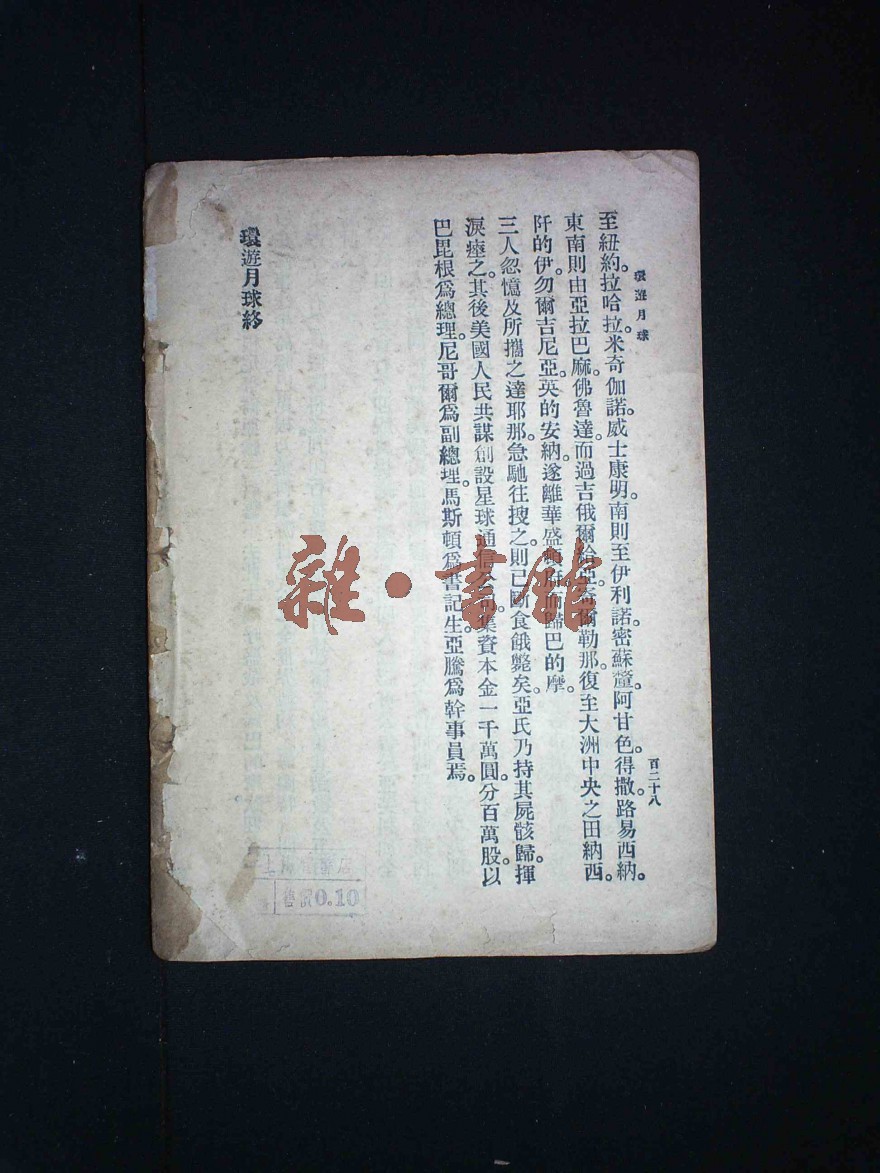 環遊月球
百二十八
至紐約。拉哈拉。米奇伽諾。威士康明。南則至伊利諾。密蘇釐。阿甘色。得撒。路易西納。
東南則由亞拉巴麻。佛魯達。而過吉俄爾給亞。奇爾勒那。復至大洲中央之田納西。
阡的伊。勿爾吉尼亞。英的安納。遂離華盛頓府而歸巴的摩。
三人忽憶及所攜之達耶那。急馳往搜之。則已斷食餓斃矣。亞氏乃持其屍骸歸。揮
淚瘞之。其後美國人民共謀創設星球通信公司。集資本金一千萬圓。分百萬股。以
巴毘根爲總理。尼哥爾爲副總理。馬斯頓爲書記生。亞騰爲幹事員焉。
環遊月球終
雜·書館
售價0.10